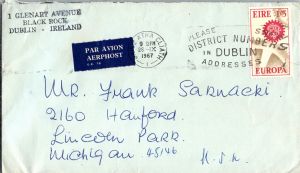 1 GLENART AVENUE
BLACK ROCK
DUBLIN - IRELAND
PAR AVION
AERPHOST
ATHA CLIATH
9 30PM
28 IX
1967
PLEASE
USE
DISTRICT NUMBERS
IN DUBLIN
ADDRESSES
EIRE
EUROPA
Mr. Frank Sarnacki
2160 Hanford.
Lincoln Park.
Michigan. 48146 U.S.A